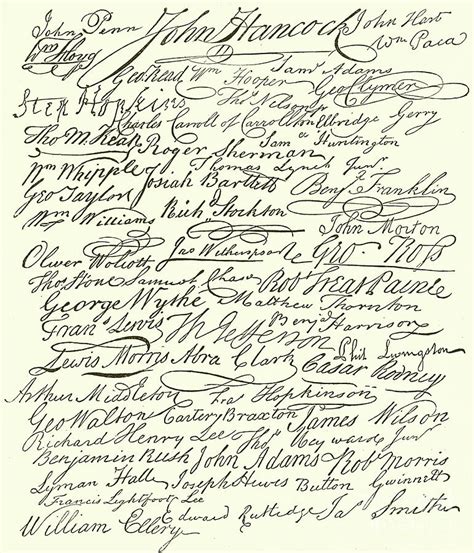 John Penn John Hancock John Hart
Wm Floyd Wm Paca
Geo Read Wm Hooper Saml Adams
Geo Clymer
Step Hopkins Thos Nelson jr
Charles Carroll of Carrollton Elbridge Gerry
Tho M: Kean Roger Sherman Saml Huntington
Wm Whipple Thomas Lynch Junr
Josiah Bartlett Benj Franklin
Geo Taylor
Wm Williams Richd Stockton John Morton
Oliver Wolcott Jno Witherspoon Geo. Ross
Thos Stone Samuel Chase Robt Treat Paine
George Wythe Matthew Thornton
Frans Lewis Th Jefferson Benj Harrison
Lewis Morris Abra Clark Phil Livingston
Cæsar Rodney
Arthur Middleton Fras Hopkinson
Geo Walton Carter Braxton James Wilson
Richard Henry Lee Thos Heyward Junr
Benjamin Rush John Adams Robt Morris
Lyman Hall Joseph Hewes Button Gwinnett
Francis Lightfoot Lee
William Ellery Edward Rutledge Jas Smith